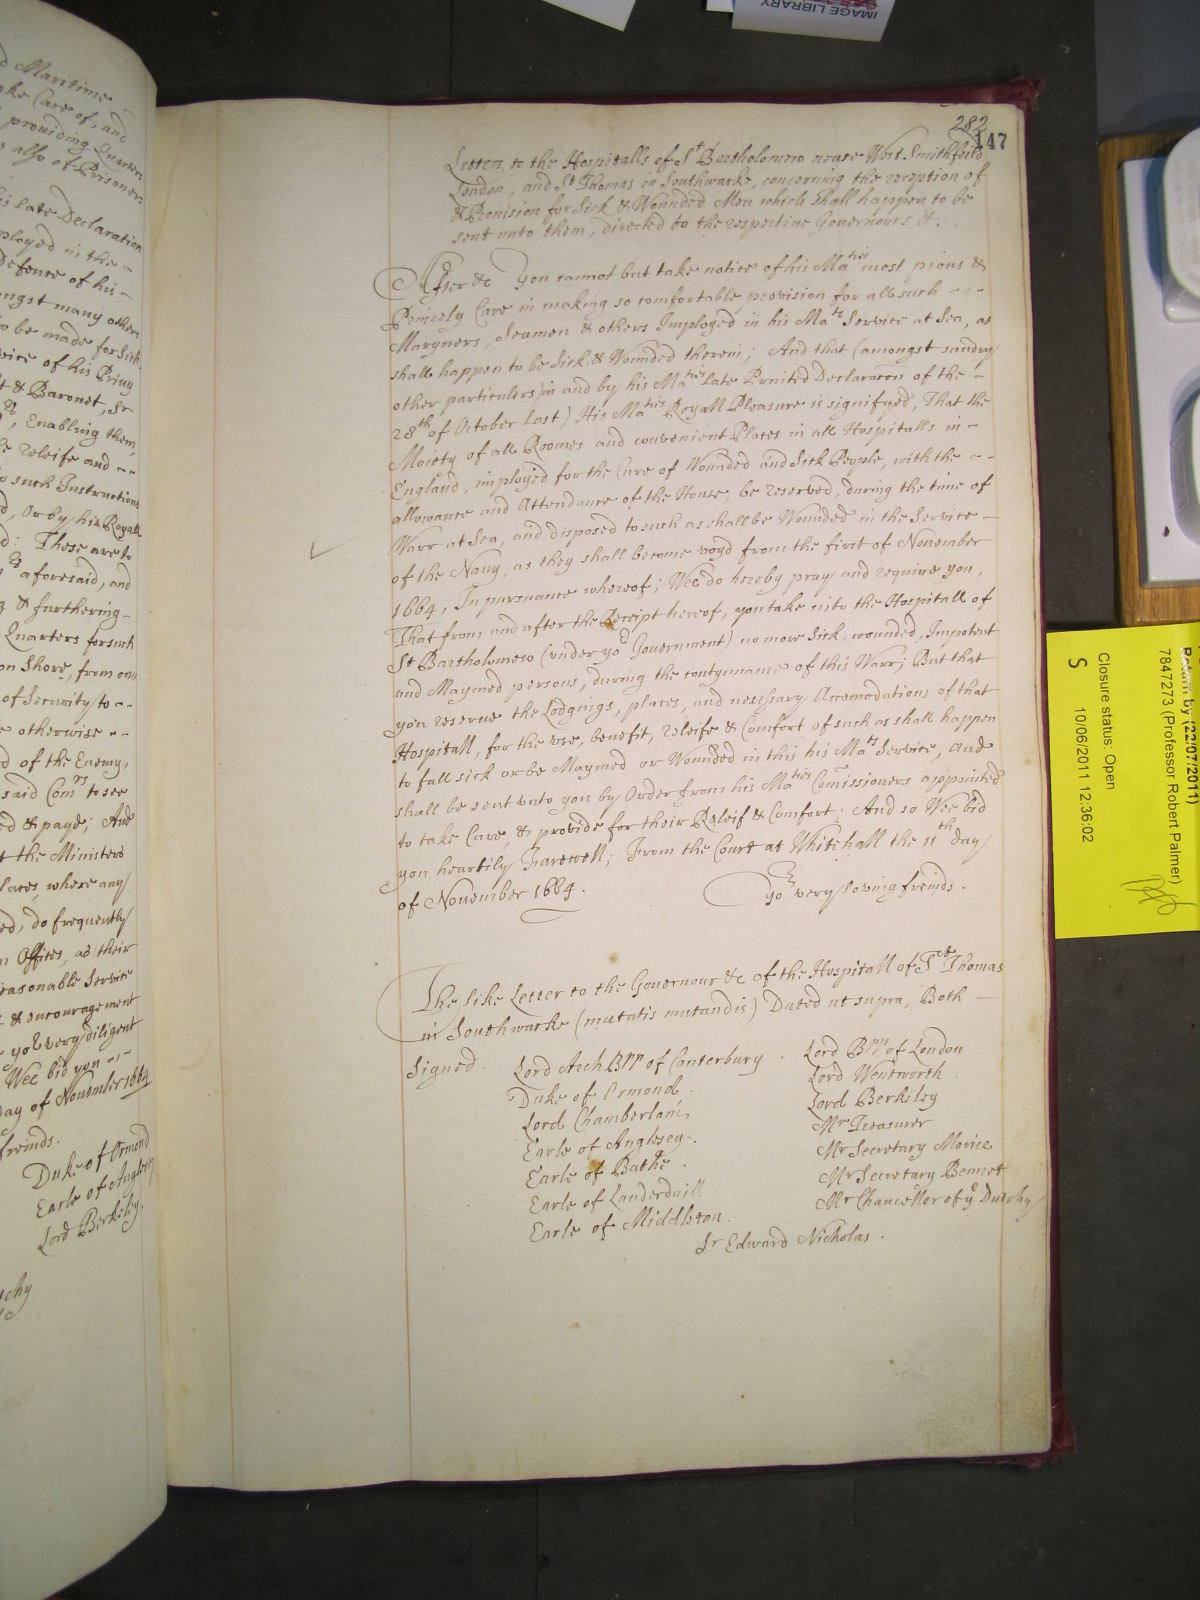 IMAGE LIBRARY
d Maritime
ake Care of, and
providing Quarters
s also of Prisoners
is late Declaration
ployed in the
Defence of his
ongst many other
to be made for Sick
vice of his Privy
t & Baronet, Sr
, Enabling them,
e releife and
o such Instructions
d, or by his Royall
d: These are to
aforesaid, and
g & furthering
Quarters for such
on Shore, from our
of Security to
e otherwise
d of the Enemy,
said Comrs to see
ed & payd; And
t the Ministers
laces, where any
ed, do frequently
n Offices, as their
easonable Service
t & encouragement
yor very diligent
Wee bid you
day of November 1664
freinds.
Duke of Ormond
Earle of Anglesey
Lord Berkeley.
uchy
282
147
Letters to the Hospitalls of St Bartholomew neare West Smithfeild
London, and St Thomas in Southwarke, concerning the reception of
& Provision for Sick & Wounded Men which shall happen to be
sent unto them, directed to the respective Governours &c.
After &c You cannot but take notice of his Maties most pious &
Princely Care in making so comfortable provision for all such
Maryners, Seamen & others Imployed in his Mats Service at Sea, as
shall happen to be Sick & Wounded therein; And that (amongst sundry
other particulers in and by his Maties late Printed Declaracon of the
28th of October last) His Maties Royall Pleasure is signifyed, That the
Moiety of all Roomes and convenient Places in all Hospitalls in
England, imployed for the Cure of Wounded and Sick People, with the
allowance and Attendance of the House, be reserved, during the time of
Warr at Sea, and disposed to such as shall be Wounded in the Service
of the Navy, as they shall become voyd from the first of November
1664, In pursuance whereof; Wee do hereby pray and require you,
That from and after the Receipt hereof, you take into the Hospitall of
St Bartholomew (under yor Government) no more Sick, wounded, Impotent
and Maymed persons, during the contynuance of this Warr; But that
you reserve the Lodgings, places, and necessary Accomodations of that
Hospitall, for the use, benefit, releife & Comfort of such as shall happen
to fall sick or be Maymed or Wounded in this his Mats Service, and
shall be sent unto you by Order from his Maties Comissioners appointed
to take Care, & provide for their Releif & Comfort; And so Wee bid
you heartily Farewell; From the Court at Whitehall the 11th day
of November 1664. Yor very loving freinds.
The like Letter to the Governour &c of the Hospitall of St Thomas
in Southwarke (mutatis mutandis) Dated ut supra, Both
Signed. Lord Arch Bpp of Canterbury. Lord Bpp of London
Duke of Ormond. Lord Wentworth
Lord Chamberlain Lord Berkeley
Earle of Anglesey. Mr Treasurer
Earle of Bathe. Mr Secretary Morice
Earle of Lauderdaill Mr Secretary Bennet
Earle of Middleton. Mr Chancellor of ye Dutchy
Sr Edward Nicholas.
Return by (22/07/2011)
7847273 (Professor Robert Palmer)
Closure status: Open
S 10/06/2011 12:36:02